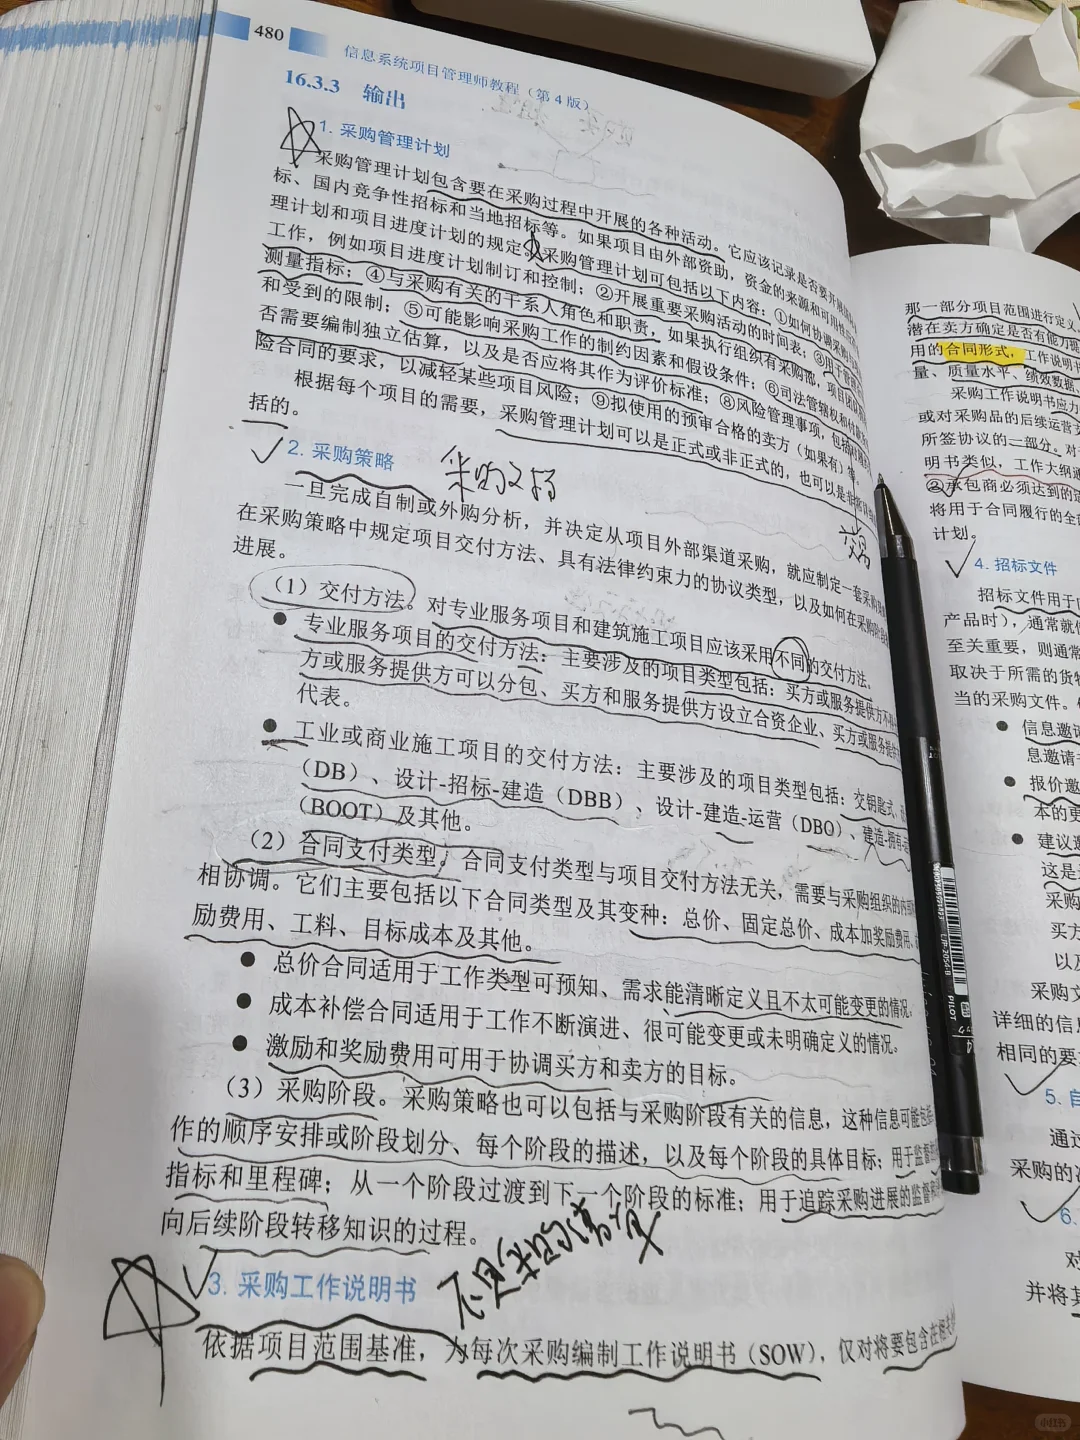 480
信息系统项目管理师教程（第4版）
16.3.3 输出
1. 采购管理计划
采购管理计划包含要在采购过程中开展的各种活动。它应该记录是否要开展国
标、国内竞争性招标和当地招标等。如果项目由外部资助，资金的来源和可用性
理计划和项目进度计划的规定。采购管理计划可包括以下内容：①如何协调采购
工作，例如项目进度计划制订和控制；②开展重要采购活动的时间表；③用于管理
测量指标；④与采购有关的干系人角色和职责，如果执行组织有采购部，项目团队
和受到的限制；⑤可能影响采购工作的制约因素和假设条件；⑥司法管辖权和付款
否需要编制独立估算，以及是否应将其作为评价标准；⑧风险管理事项，包括
险合同的要求，以减轻某些项目风险；⑨拟使用的预审合格的卖方（如果有）等。
根据每个项目的需要，采购管理计划可以是正式或非正式的，也可以是非常详细
括的。
2. 采购策略
采购文档
一旦完成自制或外购分析，并决定从项目外部渠道采购，就应制定一套采购
在采购策略中规定项目交付方法、具有法律约束力的协议类型，以及如何在采购阶段
进展。
（1）交付方法。对专业服务项目和建筑施工项目应该采用不同的交付方法。
● 专业服务项目的交付方法：主要涉及的项目类型包括：买方或服务提供方不
方或服务提供方可以分包、买方和服务提供方设立合资企业、买方或服务提
代表。
● 工业或商业施工项目的交付方法：主要涉及的项目类型包括：交钥匙式、
（DB）、设计-招标-建造（DBB）、设计-建造-运营（DBO）、建造-拥有-
（BOOT）及其他。
（2）合同支付类型。合同支付类型与项目交付方法无关，需要与采购组织的内部
相协调。它们主要包括以下合同类型及其变种：总价、固定总价、成本加奖励费用、
励费用、工料、目标成本及其他。
● 总价合同适用于工作类型可预知、需求能清晰定义且不太可能变更的情况。
● 成本补偿合同适用于工作不断演进、很可能变更或未明确定义的情况。
● 激励和奖励费用可用于协调买方和卖方的目标。
（3）采购阶段。采购策略也可以包括与采购阶段有关的信息，这种信息可能包括
作的顺序安排或阶段划分、每个阶段的描述，以及每个阶段的具体目标；用于监督
指标和里程碑；从一个阶段过渡到下一个阶段的标准；用于追踪采购进展的监督和
向后续阶段转移知识的过程。
3. 采购工作说明书
依据项目范围基准，为每次采购编制工作说明书（SOW），仅对将要包含在相关
那一部分项目范围进行定义
潜在卖方确定是否有能力提
用的合同形式，工作说明书
量、质量水平、绩效数据、
采购工作说明书应力
或对采购品的后续运营支
所签协议的一部分。对
明书类似，工作大纲通
②承包商必须达到的适
将用于合同履行的全部
计划。
4. 招标文件
招标文件用于向
产品时），通常就使
至关重要，则通常
取决于所需的货物
当的采购文件。
● 信息邀请
息邀请书
● 报价邀
本的更
● 建议邀
这是
采购
买方
以及
采购文
详细的信息
相同的要
5. 自
通过
采购的决
6.
对
并将其
PILOT
小红书